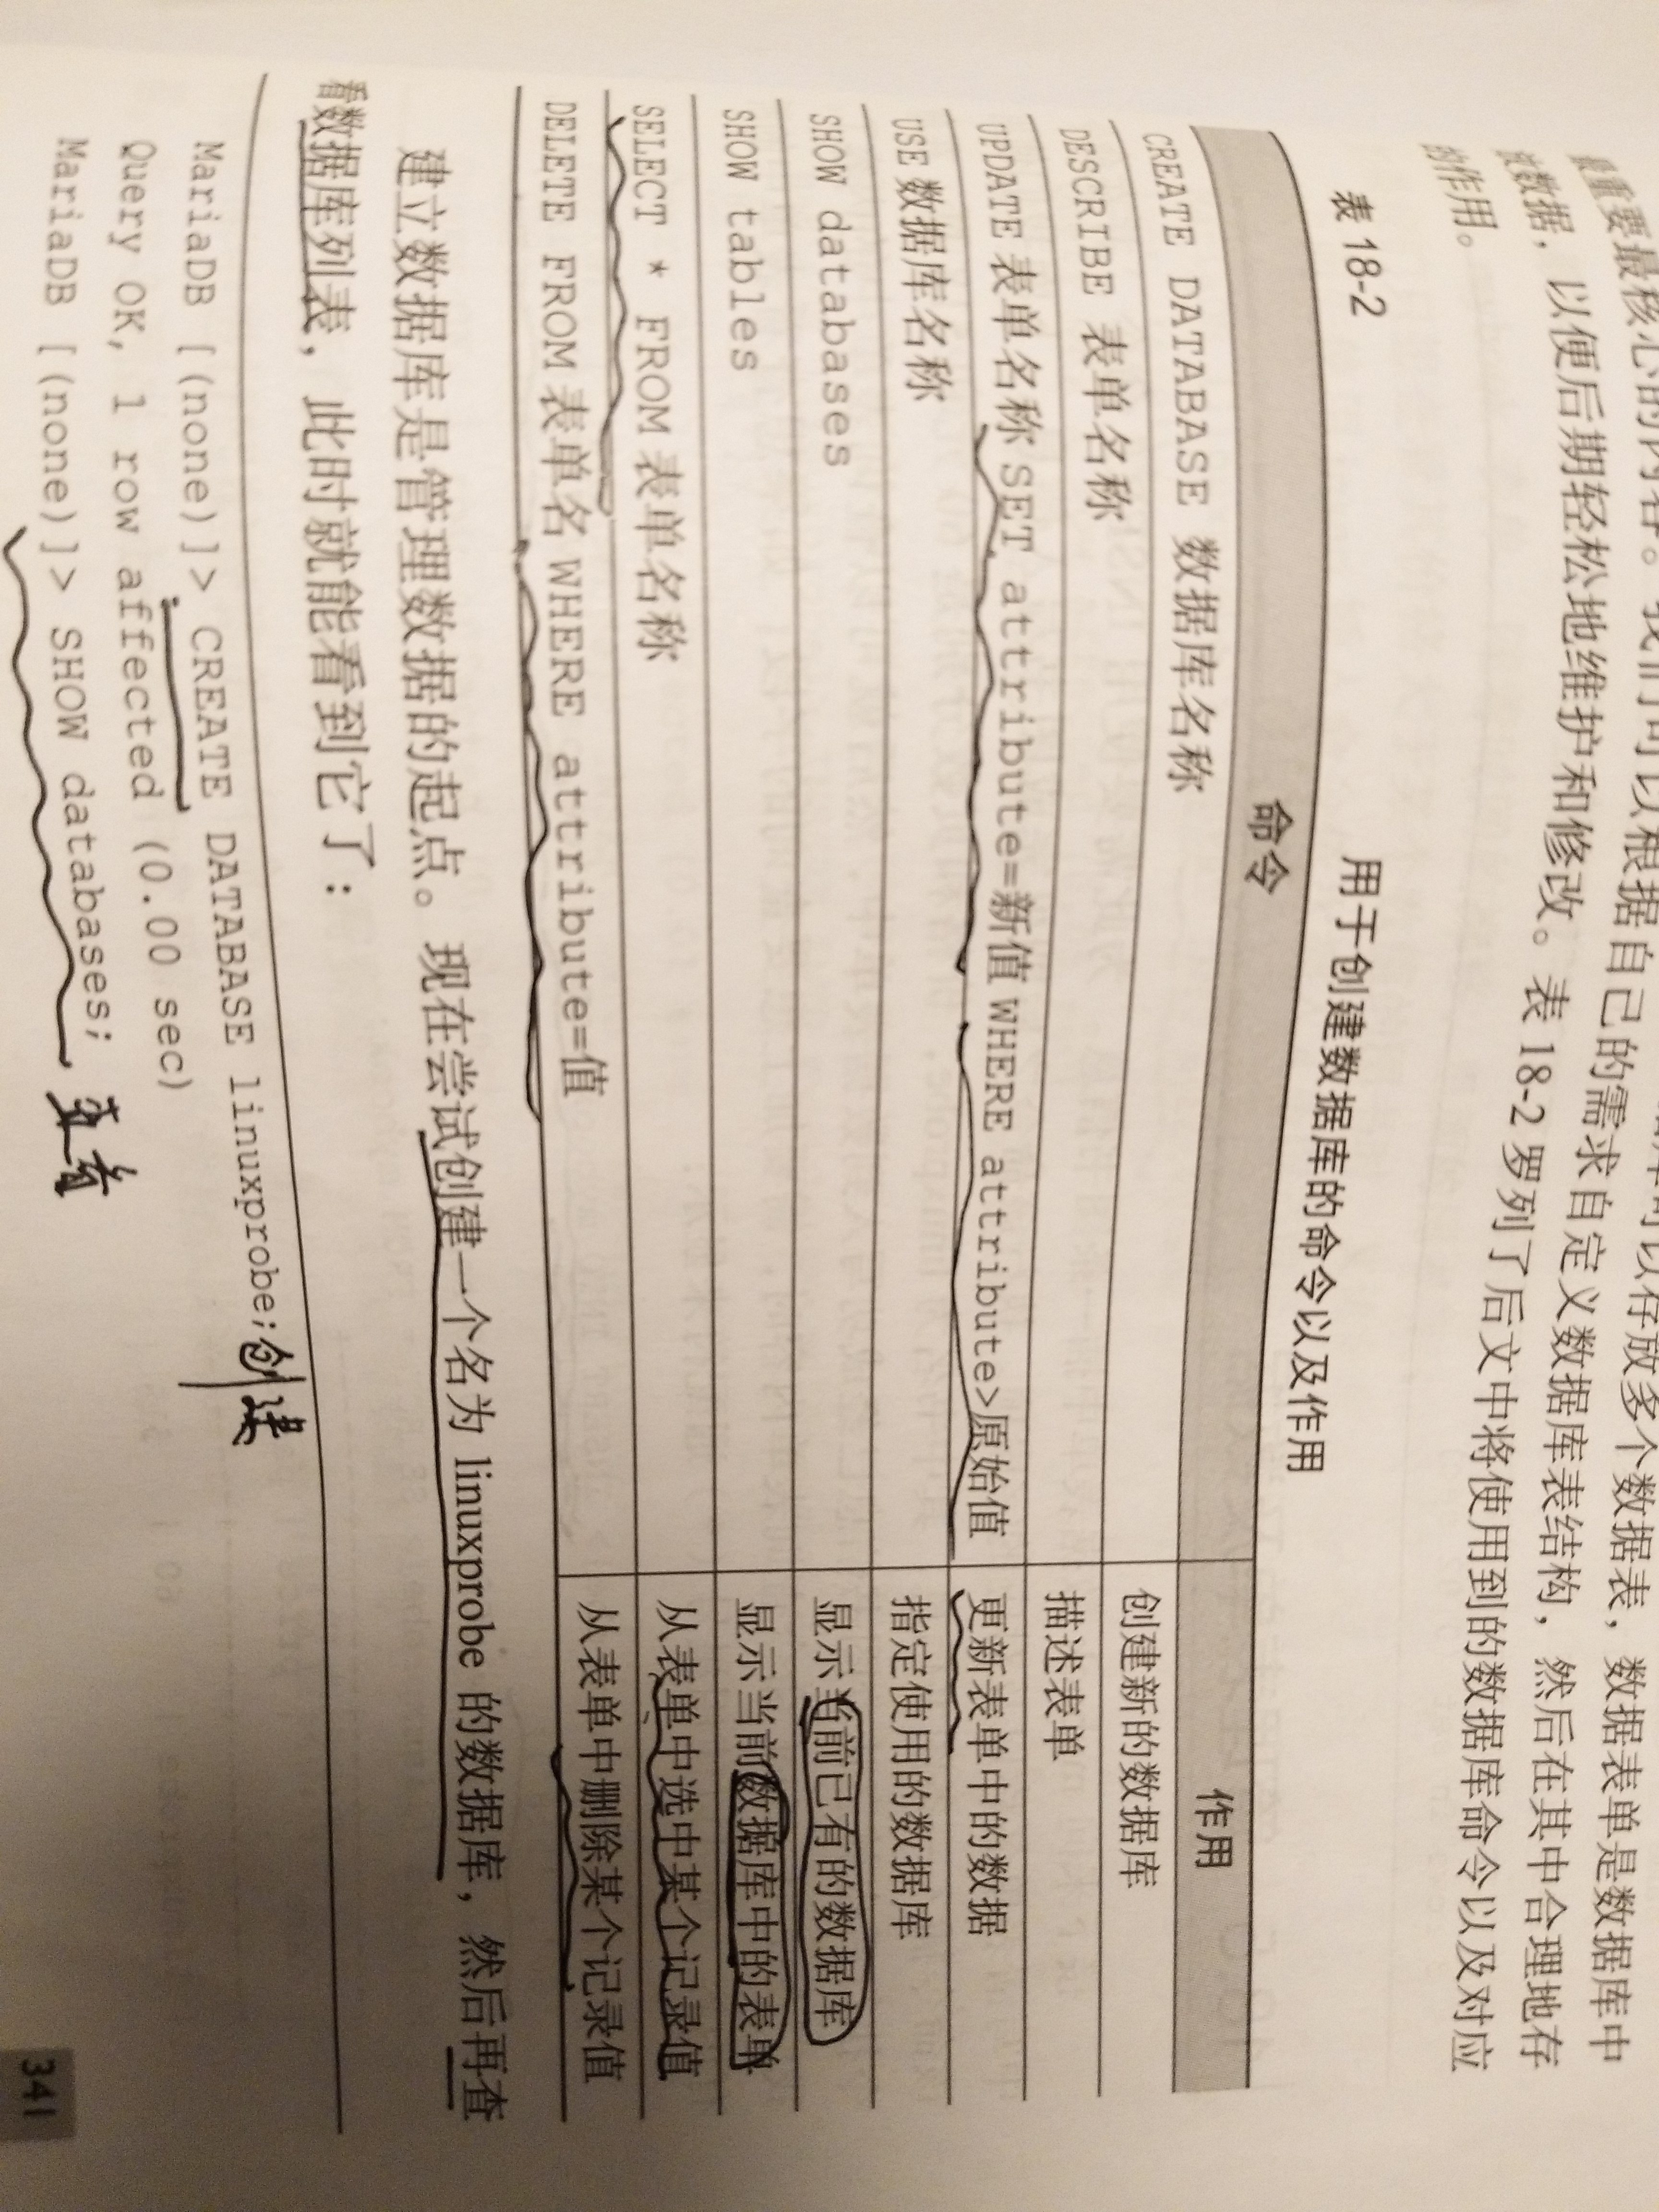 最重要最核心的内容。我们可以根据自己的需求自定义数据库表结构，然后在其中合理地存
放数据，以便后期轻松地维护和修改。表 18-2 罗列了后文中将使用到的数据库命令以及对应
的作用。
表 18-2 用于创建数据库的命令以及作用
命令 作用
CREATE DATABASE 数据库名称 创建新的数据库
DESCRIBE 表单名称 描述表单
UPDATE 表单名称 SET attribute=新值 WHERE attribute>原始值 更新表单中的数据
USE 数据库名称 指定使用的数据库
SHOW databases 显示当前已有的数据库
SHOW tables 显示当前数据库中的表单
SELECT * FROM 表单名称 从表单中选中某个记录值
DELETE FROM 表单名 WHERE attribute=值 从表单中删除某个记录值
建立数据库是管理数据的起点。现在尝试创建一个名为 linuxprobe 的数据库，然后再查
看数据库列表，此时就能看到它了：
MariaDB [(none)]> CREATE DATABASE linuxprobe; 创建
Query OK, 1 row affected (0.00 sec)
MariaDB [(none)]> SHOW databases; 查看
341